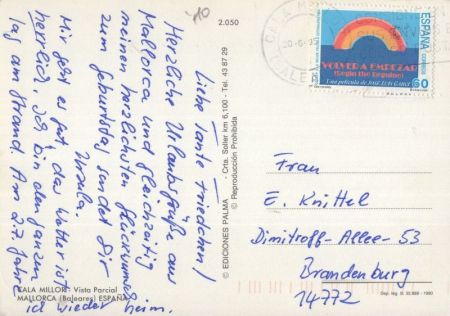 10
2.050
Liebe Tante Friedchen!
Herzliche Urlaubsgrüße aus
Mallorca und gleichzeitig
meinen herzlichsten Glückwunsch
zum Geburtstag sendet Dir
Ursula.
Mir geht es gut, das Wetter ist
herrlich, ich bin den ganzen
Tag am Strand. Am 27.
ich wieder heim.
CALA MILLOR - Vista Parcial
MALLORCA (Baleares) ESPAÑA
© EDICIONES PALMA - Orta. Soller km 6,100 - Tel. 43 87 29
© Reproducción Prohibida
CALA MILLOR
ESPAÑA
CORREOS
VOLVER A EMPEZAR
(Begin the Beguine)
Una película de JOSÉ LUIS GARCI
60
Frau
E. Knittel
Dimitroff-Allee-53
Brandenburg
14772
Dep. leg. B. 33.999 - 1990